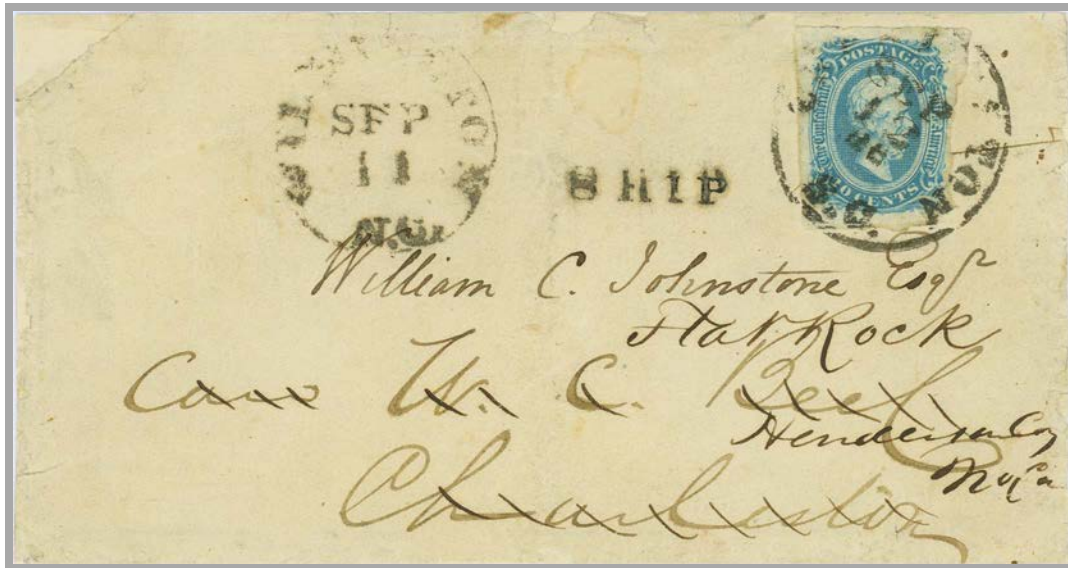 WILMINGTON
SEP
11
N.C.
SHIP
POSTAGE
The Confederate
CENTS
S.C.
William C. Johnstone Esqr
Flat Rock
Care W. C. Bee
Henderson Coy
No Ca
Charleston